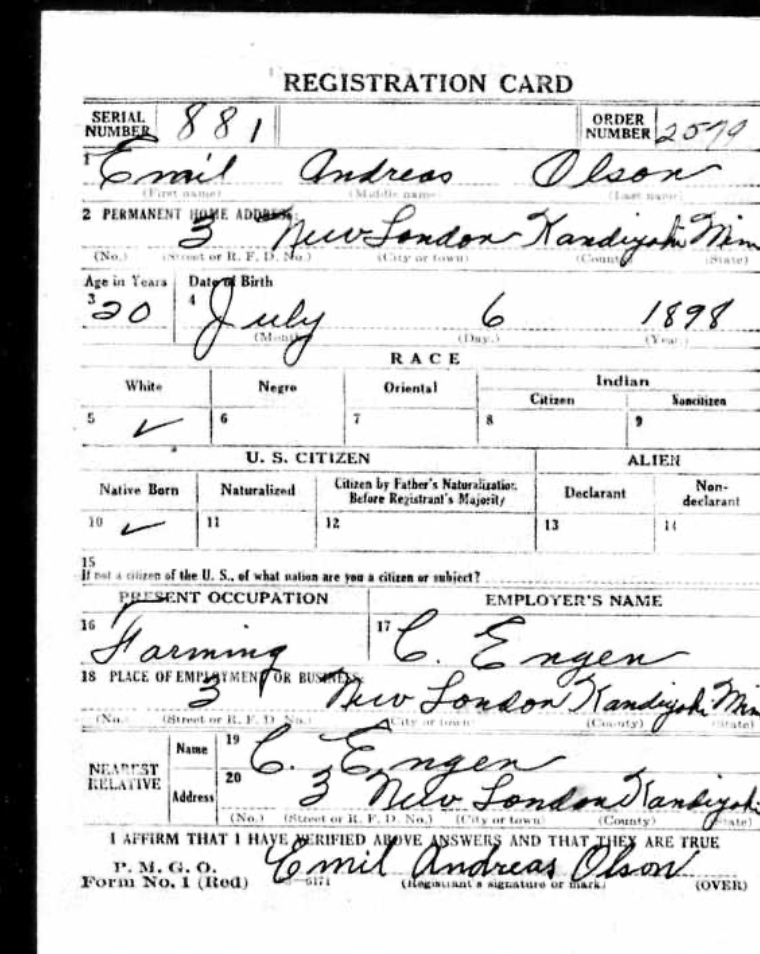 REGISTRATION CARD
SERIAL NUMBER 881 ORDER NUMBER 2579
1 Emil Andreas Olson
(First name) (Middle name) (Last name)
2 PERMANENT HOME ADDRESS:
3 New London Kandiyohi Minn
(No.) (Street or R. F. D. No.) (City or town) (County) (State)
Age in Years Date of Birth
3 20 4 July 6 1898
(Month.) (Day.) (Year.)
RACE
White Negro Oriental Indian
Citizen Noncitizen
5 ✓ 6 7 8 9
U. S. CITIZEN ALIEN
Native Born Naturalized Citizen by Father's Naturalization Before Registrant's Majority Declarant Non-declarant
10 ✓ 11 12 13 14
15
If not a citizen of the U. S., of what nation are you a citizen or subject?
PRESENT OCCUPATION EMPLOYER'S NAME
16 Farming 17 C. Engen
18 PLACE OF EMPLOYMENT OR BUSINESS:
3 New London Kandiyohi Minn
(No.) (Street or R. F. D. No.) (City or town) (County) (State)
NEAREST RELATIVE
Name 19 C. Engen
Address 20 3 New London Kandiyohi
(No.) (Street or R. F. D. No.) (City or town) (County) (State)
I AFFIRM THAT I HAVE VERIFIED ABOVE ANSWERS AND THAT THEY ARE TRUE
P. M. G. O.
Form No. 1 (Red) 3—6171 Emil Andreas Olson
(Registrant's signature or mark) (OVER)